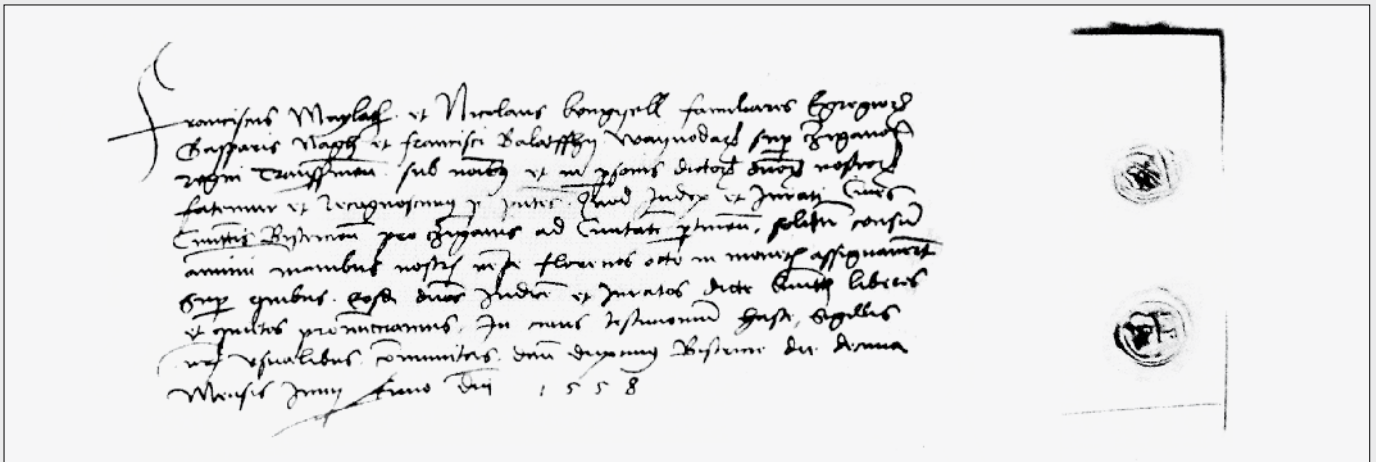 Franciscus Maylath et Nicolaus familiares Egregior
Gasparis Nagh et francisci Balassffy Wayvodar sup Cziganor
regni Transsilvan sub noib et in psonis dictor dnor nostror
fatemur et Recognoscimus p pntes Quod Judex et Jurati Cives
Civittis Bistricien pro Cziganis ad Civitatem ptinen solitum censum
manibus nostris florenos octo in moneta assignaverut
Super quibus eosd dnos Judice et Juratos dicte Civitt liberos
et quitos pronunctiamus In cuius testimonium hasce Sigillis
nris usualibus comunitas dnn duximus Bistricie die decima
Mensis Junij Anno Dni 1558